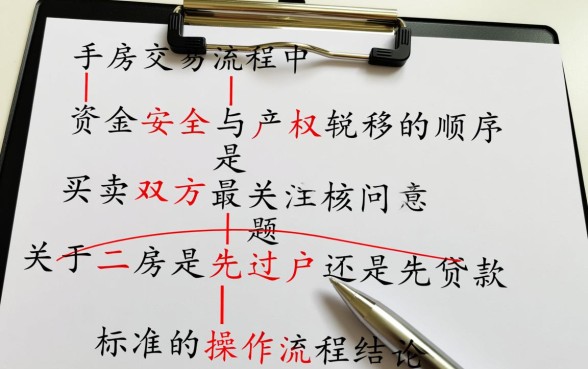 手房交易流程中
资金安全与产权锐移的顺序
是
买卖双方最关注核问意
题
关于二房是先过户还是先贷款
标准的操作流程结论